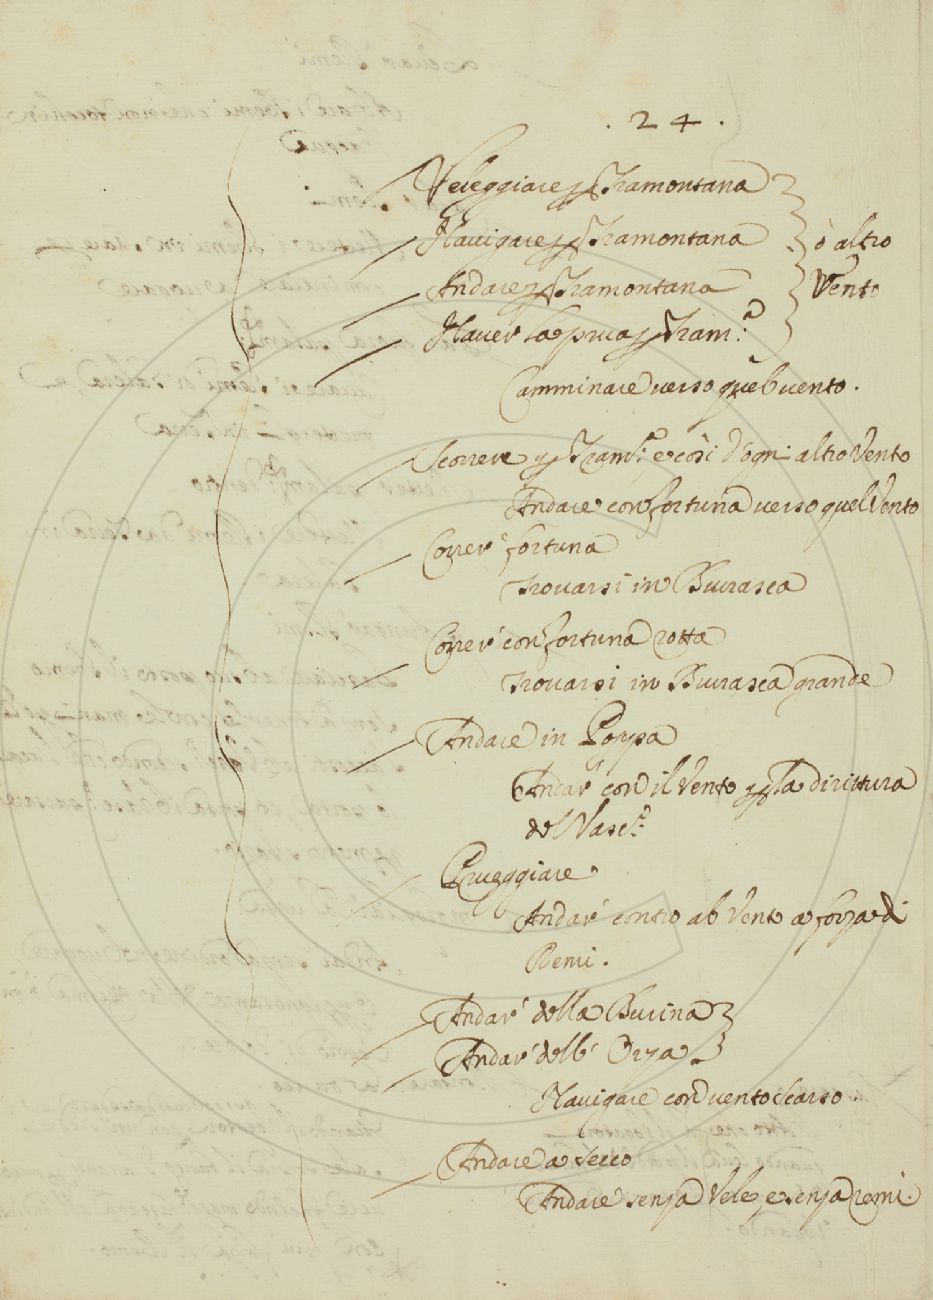 . 24 .
Veleggiare p Tramontana
Nauigare p Tramontana ò altro
Andare p Tramontana Vento
Hauer la prua p Tram:ª
Camminare uerso quel uento .
Scorrere p Tram:ª e così d'ogni altro Vento
Andare con fortuna uerso quel Vento
Correr fortuna
trouarsi in Burasca
Correr con fortuna rotta
trouarsi in Burasca grande
Andare in Poppa
Andar con il Vento p la dirittura
del Vasc:º
Prueggiare
Andar contro al Vento a forza di
Remi .
Andar della Burina
Andar dell' Orza
Nauigare con uento scarso .
Andare a secco
Andare senza Vele e senza remi .